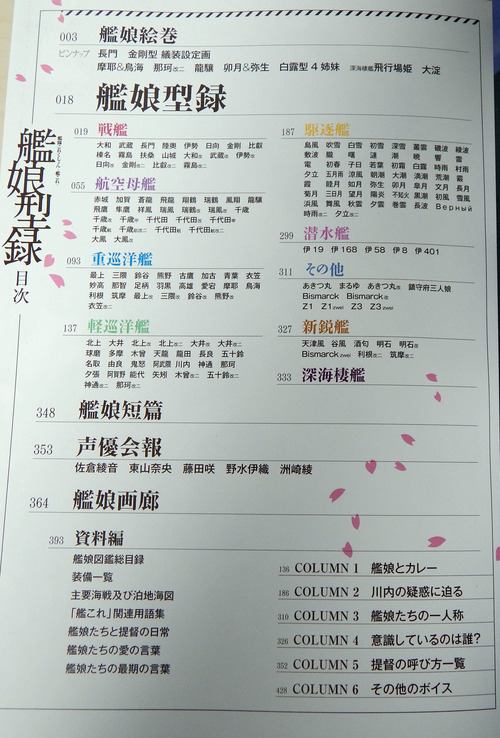 003 艦娘絵巻
ピンナップ 長門 金剛型 艤装設定画
摩耶&鳥海 那珂改二 龍驤 卯月&弥生 白露型4姉妹 深海棲艦飛行場姫 大淀
018 艦娘型録
艦娘型録 目次
019 戦艦
大和 武蔵 長門 陸奥 伊勢 日向 金剛 比叡
榛名 霧島 扶桑 山城 大和改 武蔵改 伊勢改
日向改 金剛改二 比叡改二 霧島改二
055 航空母艦
赤城 加賀 蒼龍 飛龍 翔鶴 瑞鶴 鳳翔 龍驤
飛鷹 隼鷹 祥鳳 瑞鳳 瑞鶴改 瑞鳳改 千歳
千歳改 千歳甲 千代田 千代田改 千代田甲
千歳航 千歳航改二 千代田航 千代田航改二
大鳳 大鳳改
093 重巡洋艦
最上 三隈 鈴谷 熊野 古鷹 加古 青葉 衣笠
妙高 那智 足柄 羽黒 高雄 愛宕 摩耶 鳥海
利根 筑摩 最上改 三隈改 鈴谷改 熊野改
衣笠改二
137 軽巡洋艦
北上 大井 北上改 北上改二 大井改 大井改二
球磨 多摩 木曾 天龍 龍田 長良 五十鈴
名取 由良 鬼怒 阿武隈 川内 神通 那珂
夕張 阿賀野 能代 矢矧 木曾改二 五十鈴改二
神通改二 那珂改二
187 駆逐艦
島風 吹雪 白雪 初雪 深雪 叢雲 磯波 綾波
敷波 朧 曙 漣 潮 暁 響 雷
電 初春 子日 若葉 初霜 白露 時雨 村雨
夕立 五月雨 涼風 朝潮 大潮 満潮 荒潮 霰
霞 睦月 如月 弥生 卯月 皐月 文月 長月
菊月 三日月 望月 陽炎 不知火 黒潮 初風 雪風
浜風 舞風 秋雲 夕雲 巻雲 長波 Верный
時雨改二 夕立改二
299 潜水艦
伊19 伊168 伊58 伊8 伊401
311 その他
あきつ丸 まるゆ あきつ丸改 鎮守府三人娘
Bismarck Bismarck改
Z1 Z1zwei Z3 Z3zwei
327 新鋭艦
天津風 谷風 酒匂 明石 明石改
Bismarckzwei 利根改二 筑摩改二
333 深海棲艦
348 艦娘短篇
353 声優会報
佐倉綾音 東山奈央 藤田咲 野水伊織 洲崎綾
364 艦娘画廊
393 資料編
艦娘図鑑総目録
装備一覧
主要海戦及び泊地海図
「艦これ」関連用語集
艦娘たちと提督の日常
艦娘たちの愛の言葉
艦娘たちの最期の言葉
136 COLUMN 1 艦娘とカレー
186 COLUMN 2 川内の疑惑に迫る
310 COLUMN 3 艦娘たちの一人称
326 COLUMN 4 意識しているのは誰?
352 COLUMN 5 提督の呼び方一覧
428 COLUMN 6 その他のボイス